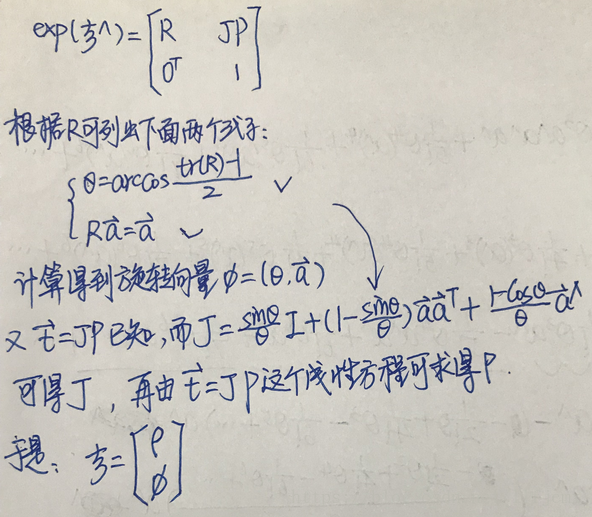 exp(ξ^)=[R Jρ
0ᵀ 1]
根据R可列出下面两个式子:
{θ=arccos (tr(R)-1)/2 ✓
Ra⃗=a⃗ ✓
计算得到旋转向量φ=(θ,a⃗)
又 t⃗=Jρ已知,而J=sinθ/θ I+(1-sinθ/θ)a⃗a⃗ᵀ+(1-cosθ)/θ a⃗^
可得J,再由t⃗=Jρ这个线性方程可求得ρ.
于是:ξ=[ρ
φ]